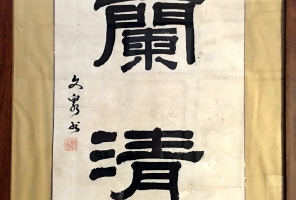 蘭清
文泉书